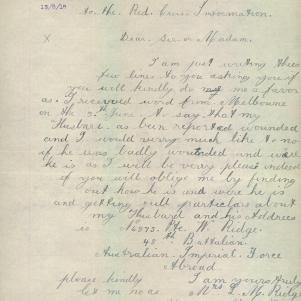 13/8/18
to the Red Cross Information.
X Dear Sir or Madam.
I am just writing these
few lines to you asking you if
you will kindly do me a favor
as I received word from Melbourne
on the June to say that my
Husband as been reported wounded
and I would verry much like to no
if he was badly wounded and were
he is as I will be verry pleast indeed
if you will oblige me by finding
out how he is and were he is
and getting full particulars about
my Husband and his Address
is No 973. Pte W. Ridge.
48th Battalian.
Australian Imperial Force
Abroad
please kindly I am yours truly
let me no as Mrs L. M. Ridge